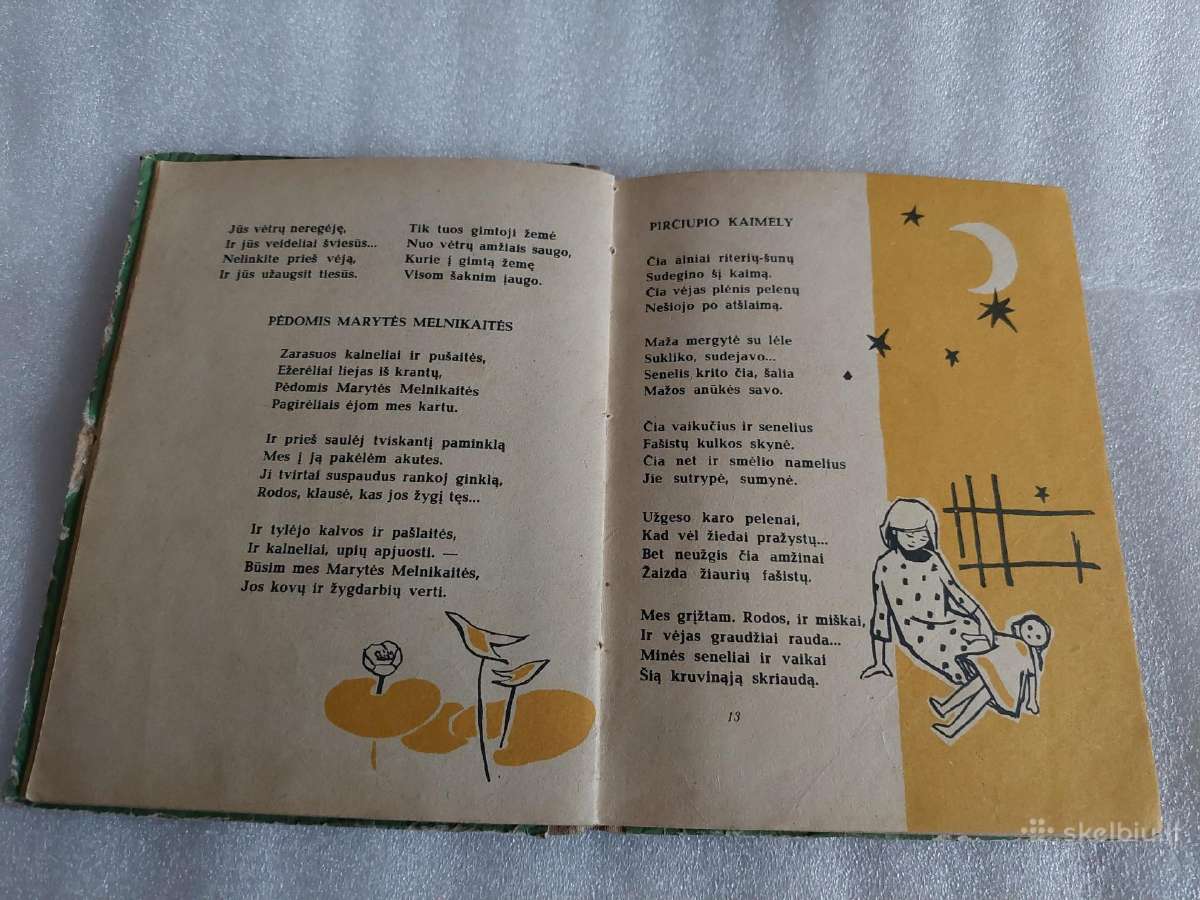 Jūs vėtrų neregėję,
Ir jūs veideliai šviesūs...
Nelinkite prieš vėją,
Ir jūs užaugsit tiesūs.
Tik tuos gimtoji žemė
Nuo vėtrų amžiais saugo,
Kurie į gimtą žemę
Visom šaknim įaugo.
PĖDOMIS MARYTĖS MELNIKAITĖS
Zarasuos kalneliai ir pušaitės,
Ežerėliai liejas iš krantų,
Pėdomis Marytės Melnikaitės
Pagirėliais ėjom mes kartu.
Ir prieš saulėj tviskantį paminklą
Mes į ją pakėlėm akutes.
Ji tvirtai suspaudus rankoj ginklą,
Rodos, klausė, kas jos žygį tęs...
Ir tylėjo kalvos ir pašlaitės,
Ir kalneliai, upių apjuosti. —
Būsim mes Marytės Melnikaitės,
Jos kovų ir žygdarbių verti.
PIRČIUPIO KAIMELY
Čia ainiai riterių-šunų
Sudegino šį kaimą.
Čia vėjas plėnis pelenų
Nešiojo po atšlaimą.
Maža mergytė su lėle
Sukliko, sudejavo...
Senelis krito čia, šalia
Mažos anūkės savo.
Čia vaikučius ir senelius
Fašistų kulkos skynė.
Čia net ir smėlio namelius
Jie sutrypė, sumynė.
Užgeso karo pelenai,
Kad vėl žiedai pražystų...
Bet neužgis čia amžinai
Žaizda žiaurių fašistų.
Mes grįžtam. Rodos, ir miškai,
Ir vėjas graudžiai rauda...
Minės seneliai ir vaikai
Šią kruvinąją skriaudą.
13
skelbiu.lt